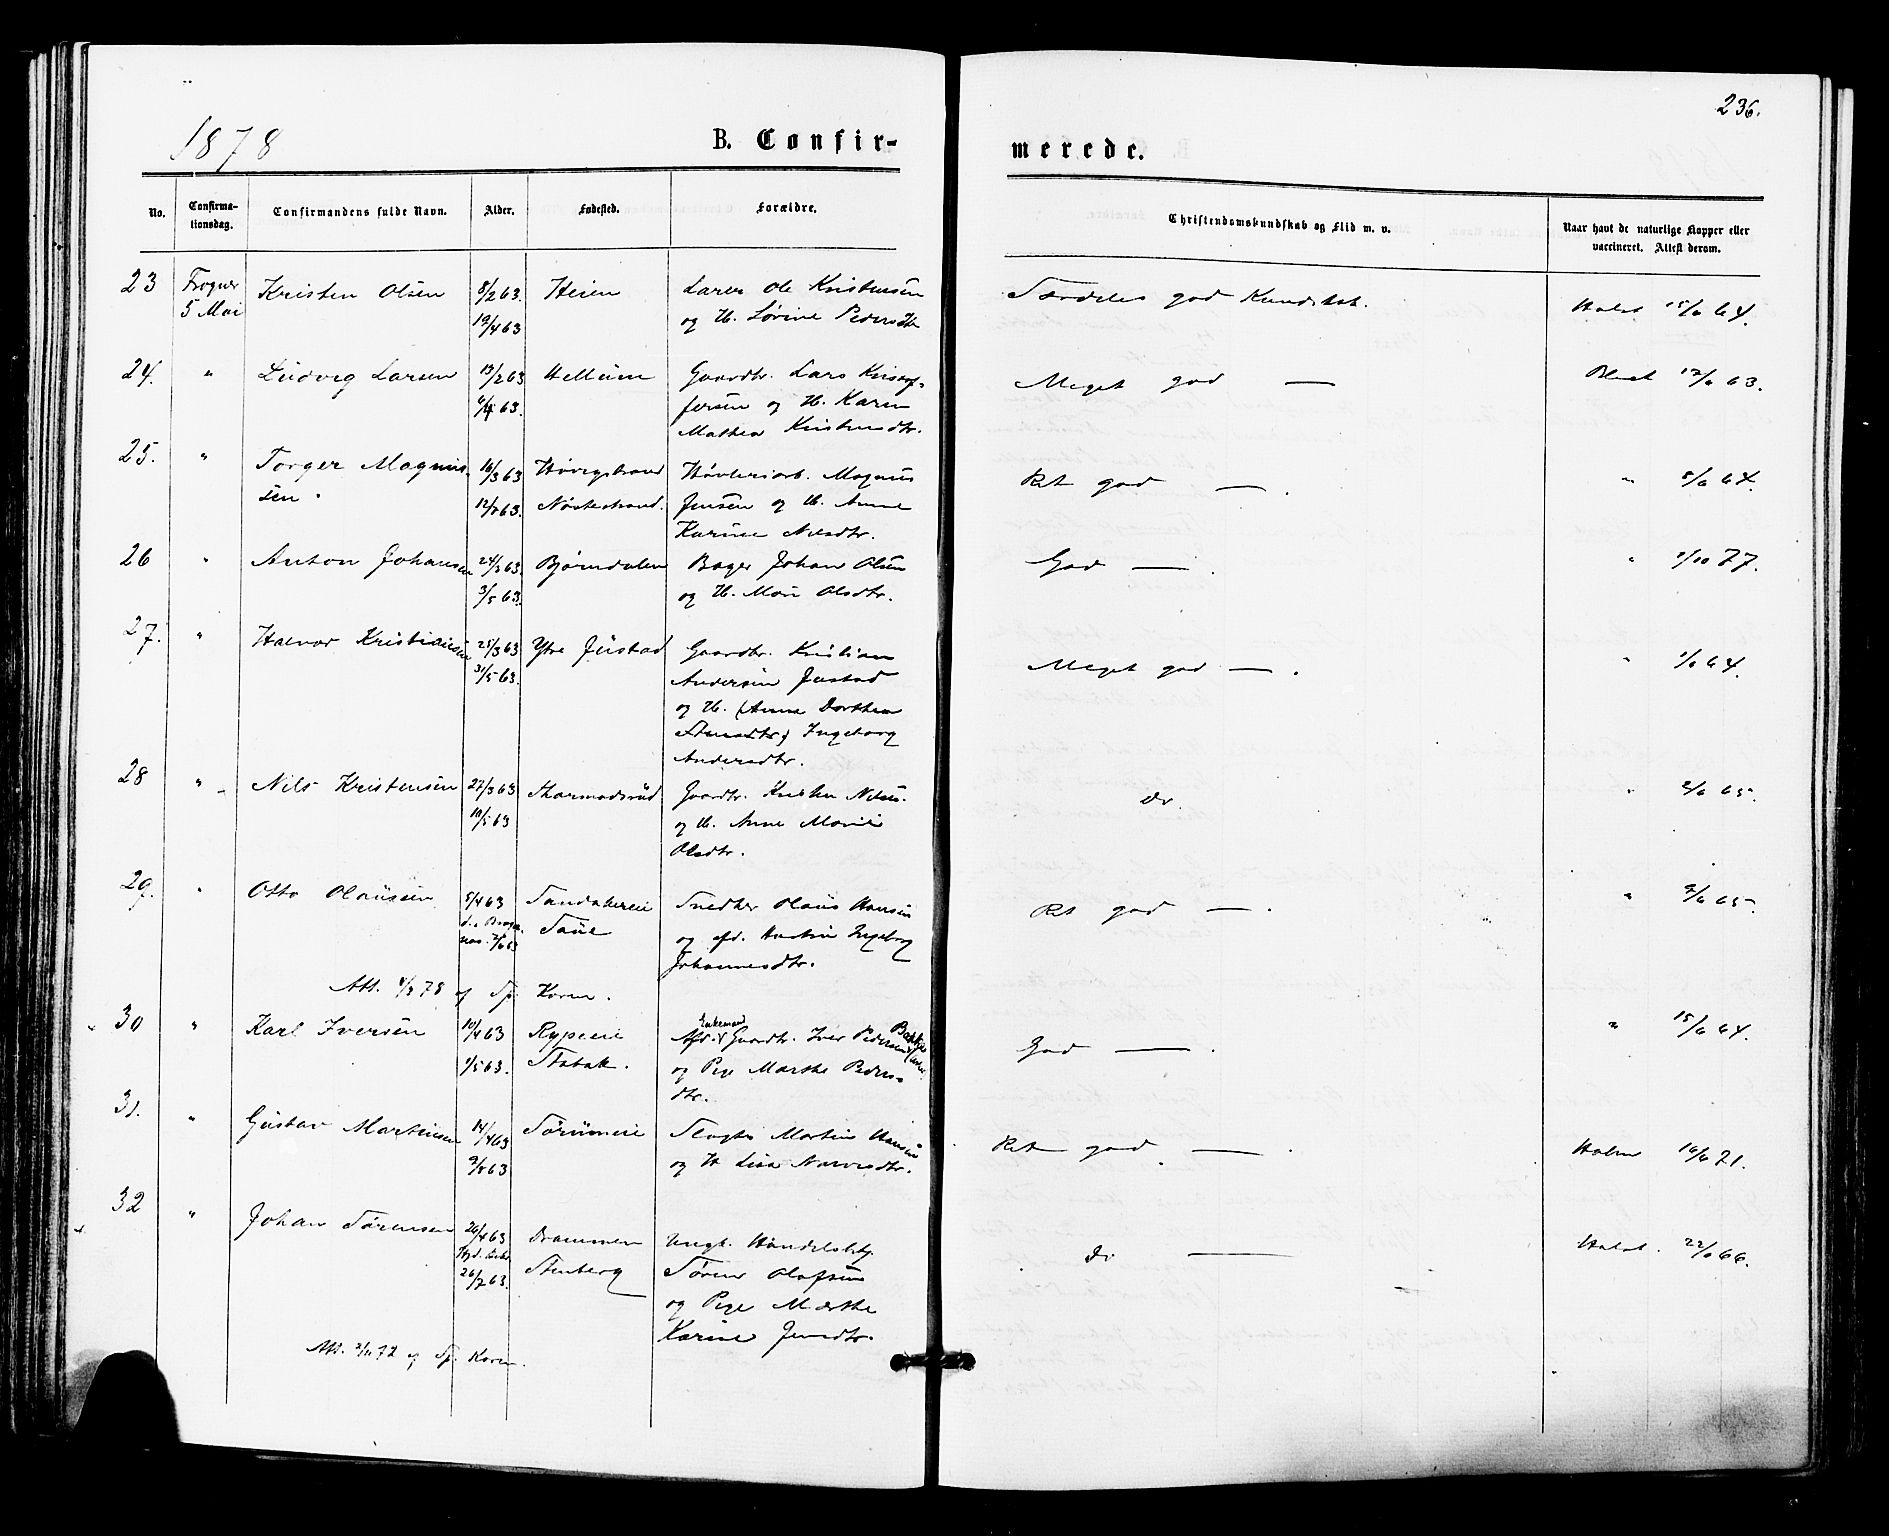 236.
1878
B. Confir-
merede.
No.
Confirma-
tionsdag.
Confirmandens fulde Navn.
Alder.
Fødested.
Forældre.
Christendomskundskab og Flid m. v.
Naar havt de naturlige Kopper eller
vaccineret. Attest derom.
23 Frogner Kristen Olsen 8/2 63. Heien Lærer Ole Kristensen Særdeles god Kundskab. Holst 15/6 64.
5 Mai 19/4 63 og H. Lørine Pedersdtr
24. " Ludvig Larsen 13/2 63 Hellum Gaardbr. Lars Kristof- Meget god — 12/6 63.
63. fersen og H. Karen
Mathea Kristensdtr.
25. " Torger Magnus- 16/3 63 Høvigstrand Høvleriarb. Magnus Ret god — . " 5/6 64.
sen . 63. Nøstestrand. Jensen og H. Anne
Karine Nilsdtr.
26 " Anton Johansen 24/3 63. Bjørndalen Bager Johan Olsen God — . " 1/10 77.
3/5 63. og H. Mari Olsdtr.
27. " Halvor Kristiansen 25/3 63 Ytre Justad Gaardbr. Kristian Meget god — . " 1/6 64.
31/5 63. Andersen Justad
og H. (Anne Dorthea
Ingeborg
Andersdtr.
28 " Nils Kristensen 27/3 63 Gaardbr. Kristen Nilsen do. " 2/6 65.
10/5 63 og H. Anne Marie
Olsdtr.
29. " Otto Olausen 5/4 63 Sandakereie Snedker Olaus Hansen Ret god — . " 9/6 65.
63 og afd. Hustru Ingeborg
Johannesdtr.
Att. 4/3 78 af Sp. Koren.
30 " Karl Iversen 10/4 63 Rypeeie Enkemand
Afd. Gaardbr. Iver Pedersen God — . " 15/6 64.
1/5 63. Stabæk. og Pige Marthe Peders-
dtr.
31. " Gustav Martinsen 14/4 63 Sørumeie Martin Hansen Ret god. — . 16/6 71.
63 og H Lisa
32 " Johan Sørensen 26/4 63 Drammen Ungk. Handelsbtj. do — Holst. 22/6 66.
26/7 63. Stenberg Søren Olafsen
og Pige Marthe
Karine Jensdtr.
Att. 72 af Sp. Koren.